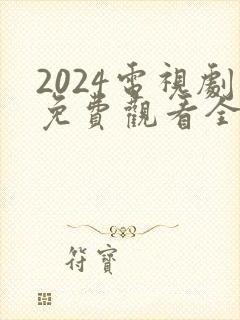 2024電視劇
免費觀看全
符寶